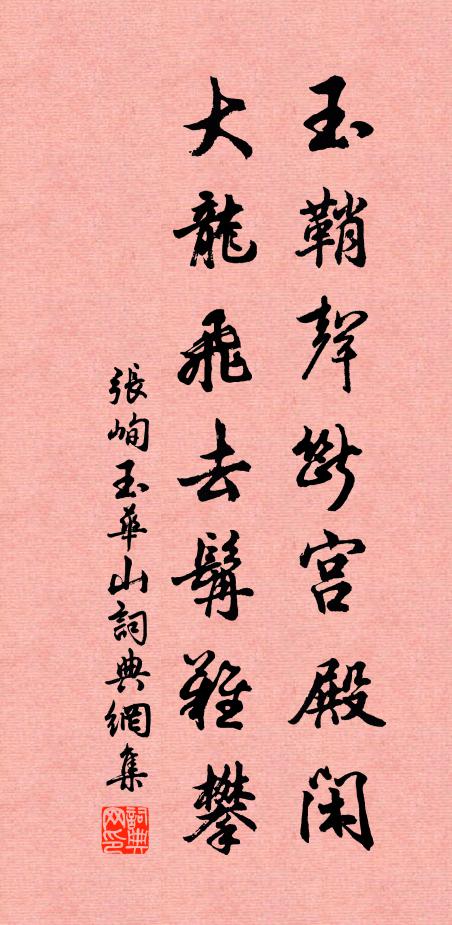 玉鞘聲斷宮殿閑
大龍飛去髯難攀
張峋玉華山詞典網集
詞典网印